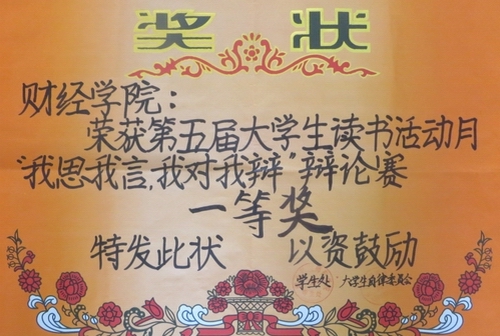 奖状
财经学院：
荣获第五届大学生读书活动月
"我思我言，我对我辩"辩论赛
一等奖
特发此状 以资鼓励
学生处 大学生自律委员会